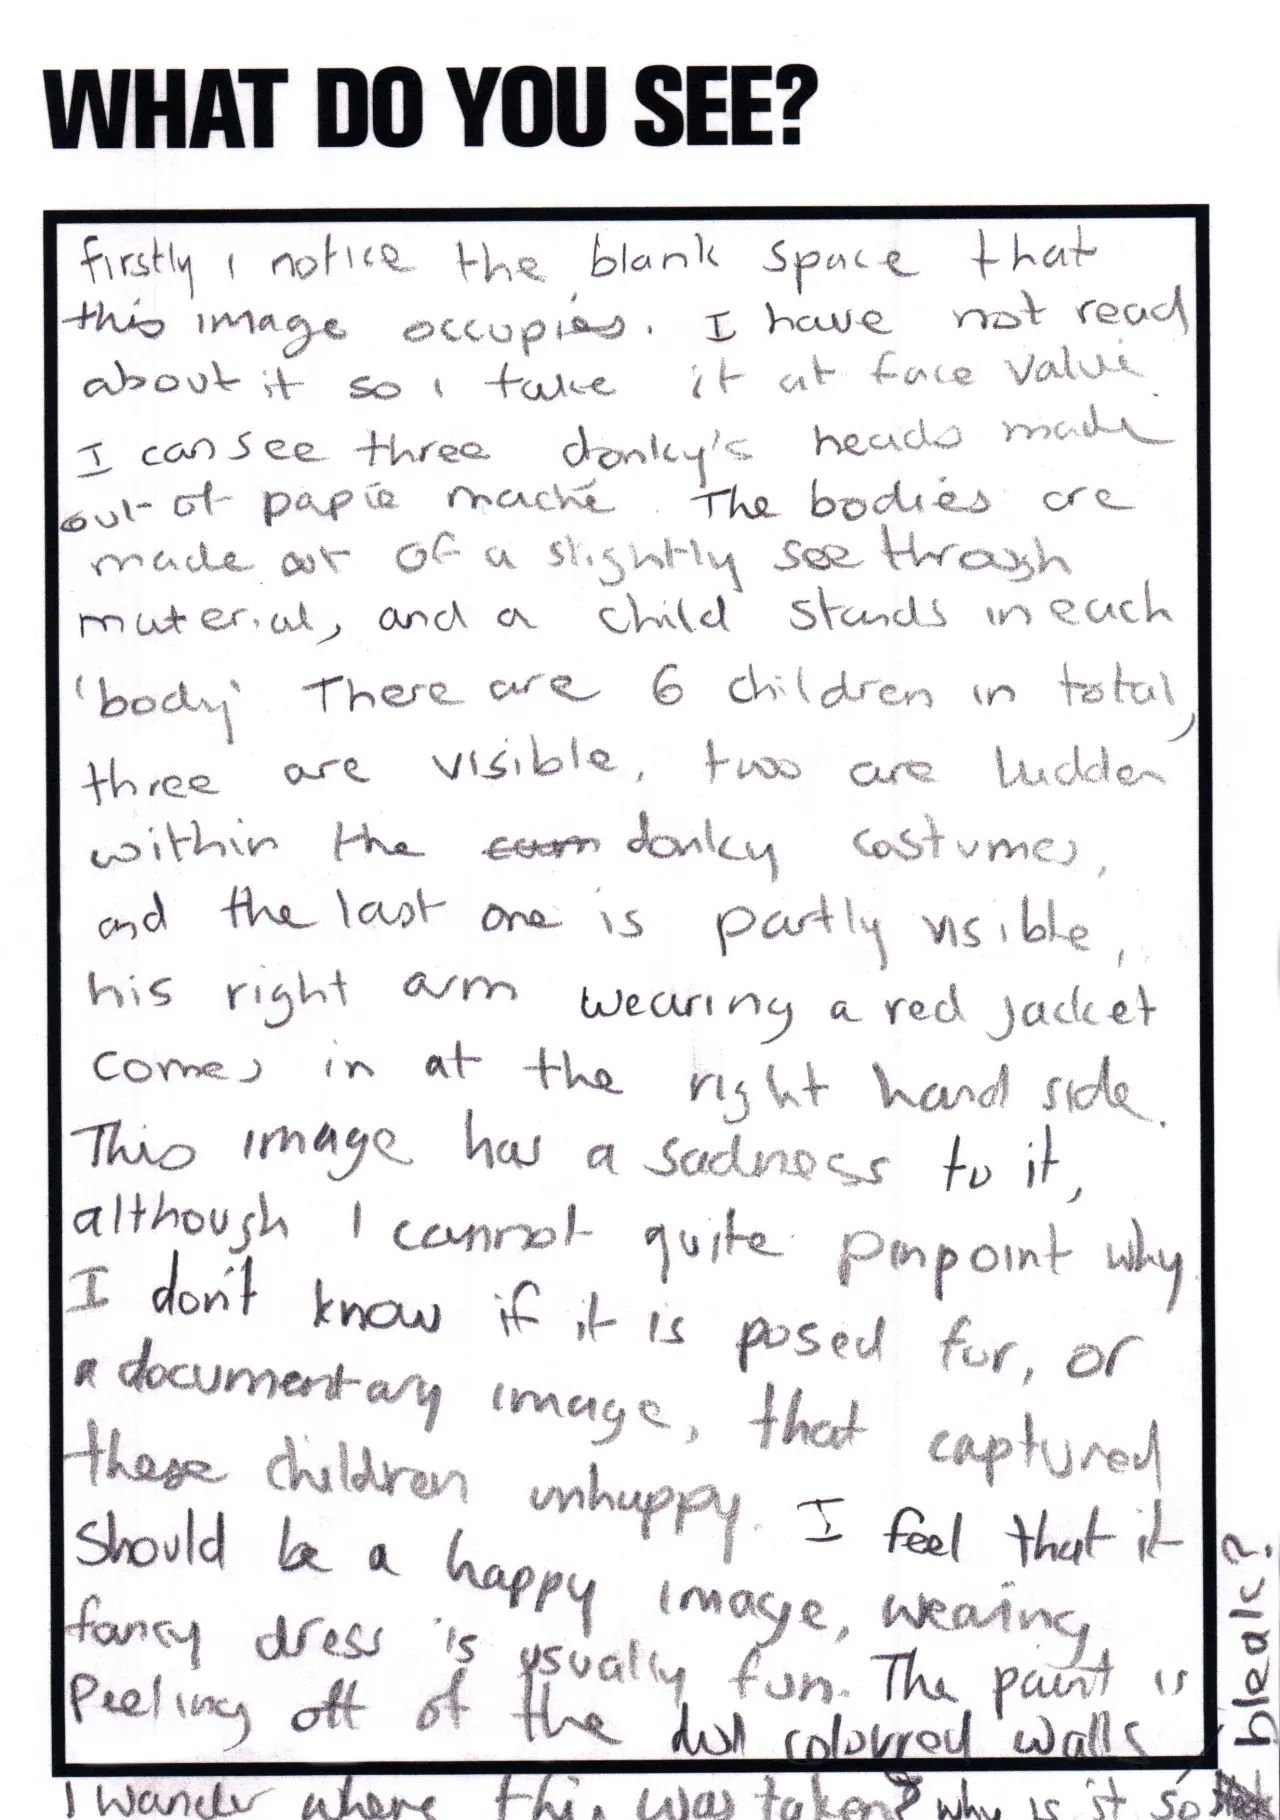 WHAT DO YOU SEE?
firstly i notice the blank space that
this image occupies. I have not read
about it so i take it at face value.
I can see three donky's heads made
out of papie maché. The bodies are
made out of a slightly see through
material, and a child stands in each
'body' There are 6 children in total,
three are visible, two are hidden
within the donky costumes,
and the last one is partly visible,
his right arm wearing a red jacket
comes in at the right hand side.
This image has a sadness to it,
although I cannot quite pinpoint why
I don't know if it is posed fur, or
a documentary image, that captured
these children unhappy. I feel that it
should be a happy image, wearing
fancy dress is usually fun. The paint is
peeling off of the dull colourred walls
I wander where this was taken? why is it so
bleak?